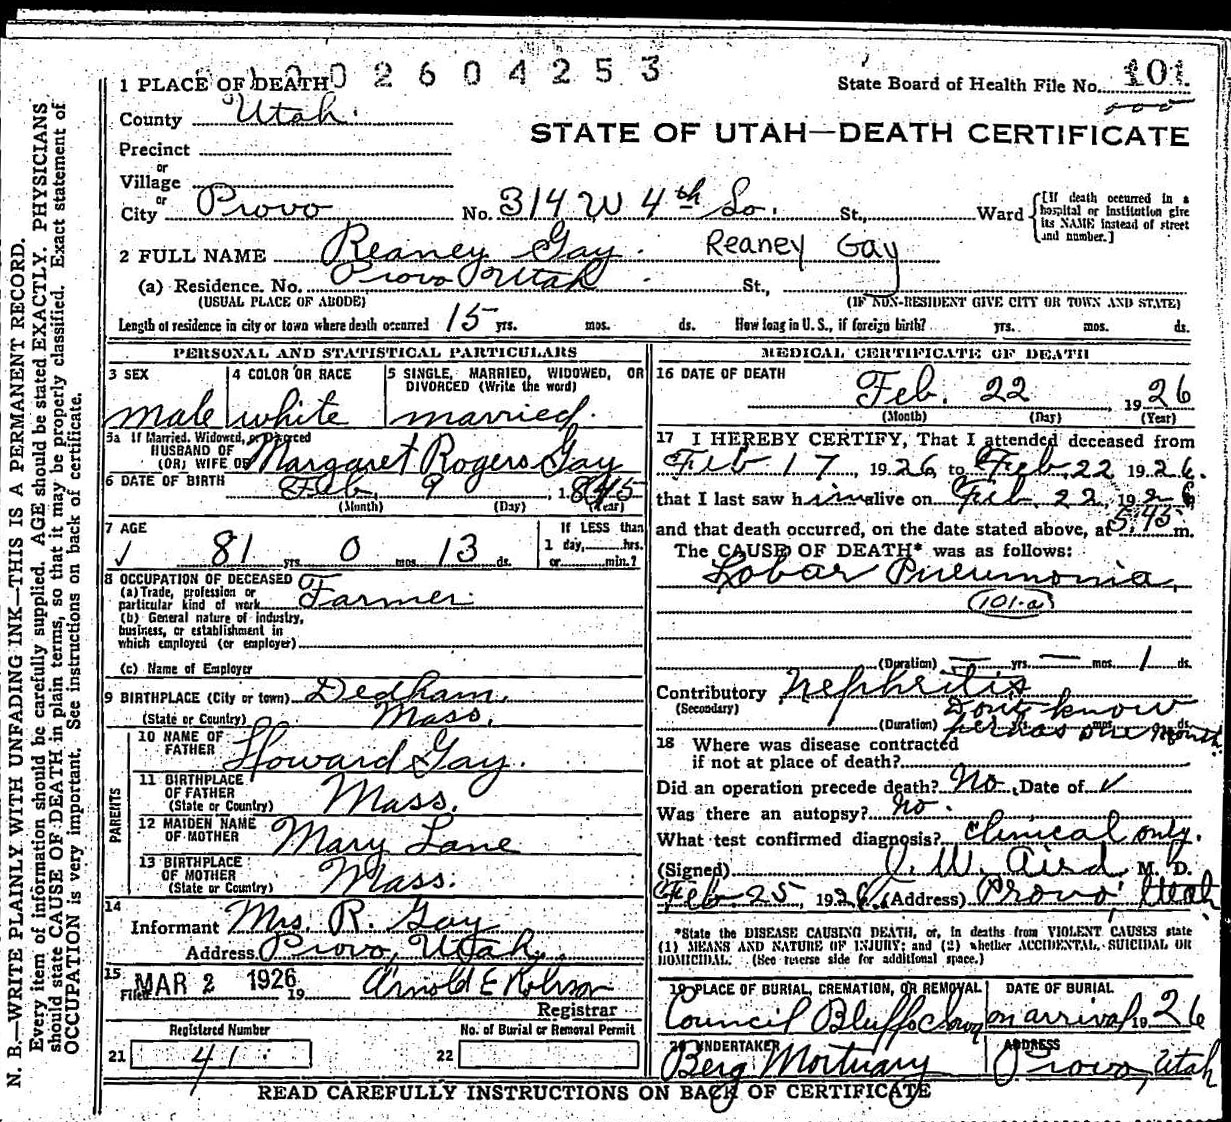 N. B.—WRITE PLAINLY WITH UNFADING INK—THIS IS A PERMANENT RECORD.
Every item of information should be carefully supplied. AGE should be stated EXACTLY. PHYSICIANS
should state CAUSE OF DEATH in plain terms, so that it may be properly classified. Exact statement of
OCCUPATION is very important. See instructions on back of certificate.
02604253
1 PLACE OF DEATH
State Board of Health File No. 101
County Utah.
STATE OF UTAH—DEATH CERTIFICATE
Precinct
or
Village
or
City Provo No. 314 W 4th So. St., Ward [If death occurred in a hospital or institution give its NAME instead of street and number.]
2 FULL NAME Reaney Gay. Reaney Gay
(a) Residence. No. Provo Utah St.,
(USUAL PLACE OF ABODE) (IF NON-RESIDENT GIVE CITY OR TOWN AND STATE)
Length of residence in city or town where death occurred 15 yrs. mos. ds. How long in U.S., if foreign birth? yrs. mos. ds.
PERSONAL AND STATISTICAL PARTICULARS
3 SEX male
4 COLOR OR RACE white
5 SINGLE, MARRIED, WIDOWED, OR DIVORCED (Write the word) married.
5a If Married, Widowed, or Divorced
HUSBAND OF
(OR) WIFE OF Margaret Rogers Gay
6 DATE OF BIRTH Feb. 9, 1845
(Month) (Day) (Year)
7 AGE
81 yrs. 0 mos. 13 ds.
If LESS than
1 day,......hrs.
or......min.?
8 OCCUPATION OF DECEASED
(a) Trade, profession or
particular kind of work Farmer
(b) General nature of industry,
business, or establishment in
which employed (or employer)
(c) Name of Employer
9 BIRTHPLACE (City or town) Dedham,
(State or Country) Mass.
PARENTS
10 NAME OF
FATHER Howard Gay.
11 BIRTHPLACE
OF FATHER
(State or Country) Mass.
12 MAIDEN NAME
OF MOTHER Mary Lane
13 BIRTHPLACE
OF MOTHER
(State or Country) Mass.
14
Informant Mrs. R. Gay
Address Provo, Utah.
15
Filed MAR 2 1926 19 Arnold E Robison
Registrar
Registered Number No. of Burial or Removal Permit
21 41 22
MEDICAL CERTIFICATE OF DEATH
16 DATE OF DEATH
Feb. 22, 1926
(Month) (Day) (Year)
17 I HEREBY CERTIFY, That I attended deceased from
Feb 17, 1926, to Feb, 22 1926.
that I last saw him alive on Feb 22, 1926
and that death occurred, on the date stated above, at 5:45 m.
The CAUSE OF DEATH* was as follows:
Lobar Pneumonia,
101-a
(Duration) — yrs. — mos. 1 ds.
Contributory Nephritis
(Secondary) Dont know
(Duration) perhaps one Month yrs. mos. ds.
18 Where was disease contracted
if not at place of death?
Did an operation precede death? No. Date of ✓
Was there an autopsy? no.
What test confirmed diagnosis? Clinical only.
(Signed) J. W. Aird, M. D.
Feb. 25, 1926. (Address) Provo, Utah.
*State the DISEASE CAUSING DEATH, or, in deaths from VIOLENT CAUSES state
(1) MEANS AND NATURE OF INJURY; and (2) whether ACCIDENTAL, SUICIDAL OR
HOMICIDAL. (See reverse side for additional space.)
19 PLACE OF BURIAL, CREMATION, OR REMOVAL DATE OF BURIAL
Council Bluffs Iowa on arrival 1926
20 UNDERTAKER ADDRESS
Berg Mortuary Provo, Utah
READ CAREFULLY INSTRUCTIONS ON BACK OF CERTIFICATE